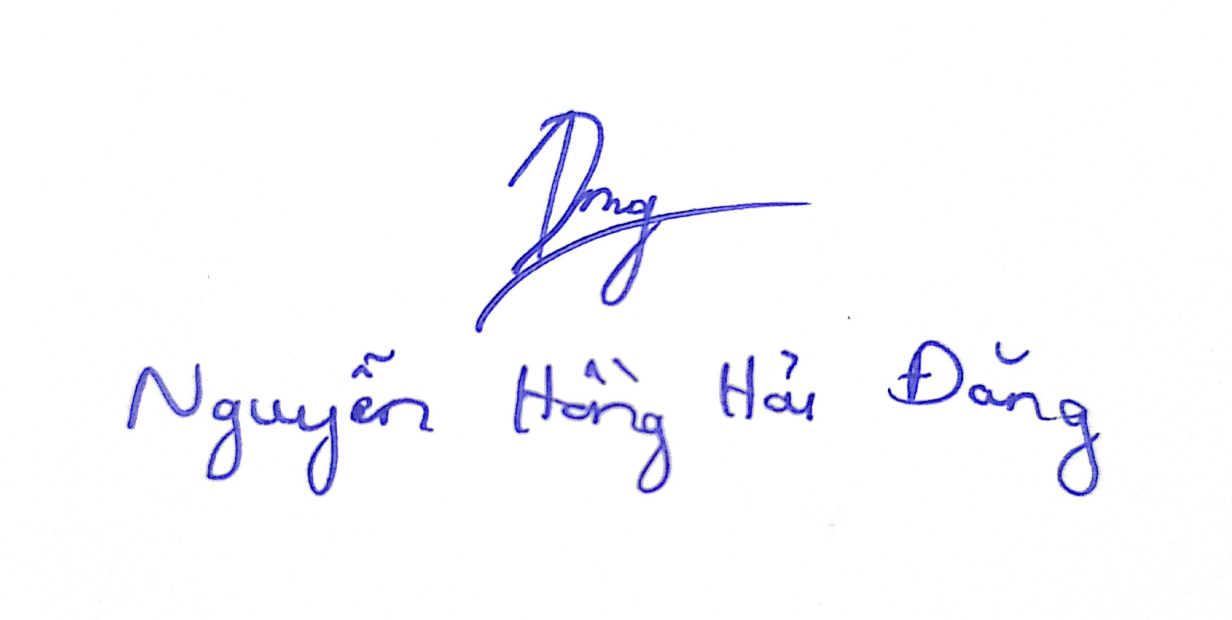 Nguyễn Hồng Hải Đăng